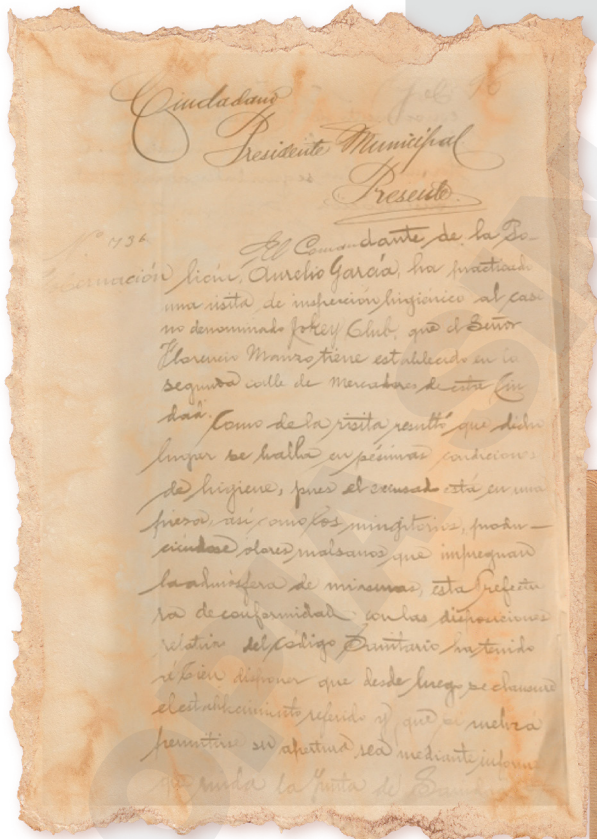 Ciudadano
Presidente Municipal
Presente.
Nº 1736
El Comandante de la Po-
licía, Aurelio García, ha practicado
una visita de inspección higiénica al casi
no denominado Jokey Club, que el Señor
Florencio Manzo, tiene establecido en la
segunda calle de Mercaderes de esta Ciu
dad.
Como de la visita resultó que dicho
lugar se halla en pésimas condiciones
de higiene, pues el escusad está en una
pieza, así como los mingitorios, produ-
ciéndose olores malsanos que impregnan
la atmósfera de miasmas, esta Prefectu
ra de conformidad con las disposiciones
relativas del Código Sanitario ha tenido
á bien disponer que desde luego se clausure
el establecimiento referido y que
permitirse su apertura sea mediante informe
que rinda la Junta de